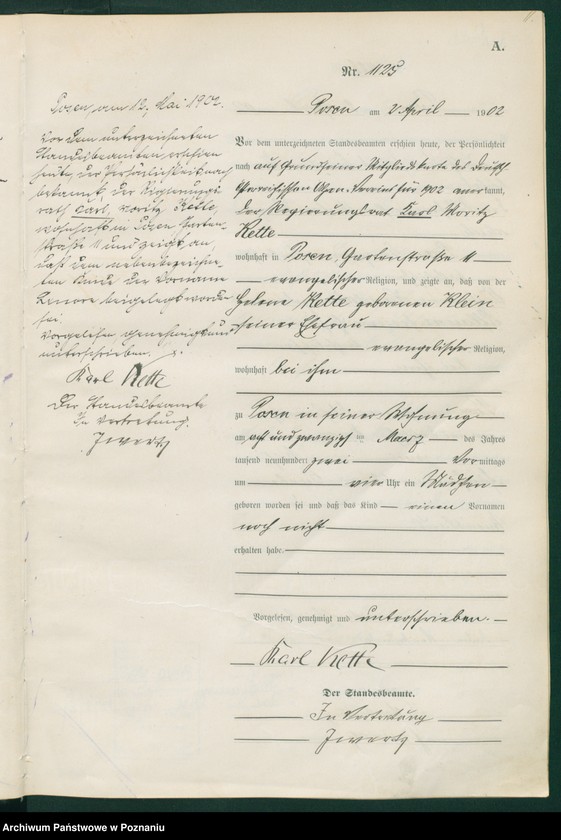 A.
Nr. 1125
Posen am 2 April 1902
Vor dem unterzeichneten Standesbeamten erschien heute, der Persönlichkeit
nach auf Grund seiner Mitgliedskarte des Deutsch
Ostpreußischen Verein für 902 anerkannt,
der Regierungsrat Karl Moritz
Kette
wohnhaft in Posen, Gartenstraße 11
evangelischer Religion, und zeigte an, daß von der
Helene Kette geborenen Klein
seiner Ehefrau
evangelischer Religion,
wohnhaft bei ihm
zu Posen in seiner Wohnung
am acht und zwanzigsten Maerz des Jahres
tausend neunhundert zwei Vormittags
um vier Uhr ein Mädchen
geboren worden sei und daß das Kind einen Vornamen
noch nicht
erhalten habe
Vorgelesen, genehmigt und unterschrieben.
Karl Kette
Der Standesbeamte.
In Vertretung
Posen, am 12. Mai 1902.
Vor dem unterzeichneten
Standesbeamten erschien
heute, der Persönlichkeit nach
bekannt, der Regierungs
rath Carl, Moritz Kette,
wohnhaft in Posen Garten-
straße 11 und zeigt an,
daß dem nebenbezeichne-
ten Kinde der Vorname
Lenore beigelegt worden
sei.
Vorgelesen genehmigt und
unterschrieben.
Karl Kette
Der Standesbeamte
In Vertretung.
Archiwum Państwowe w Poznaniu